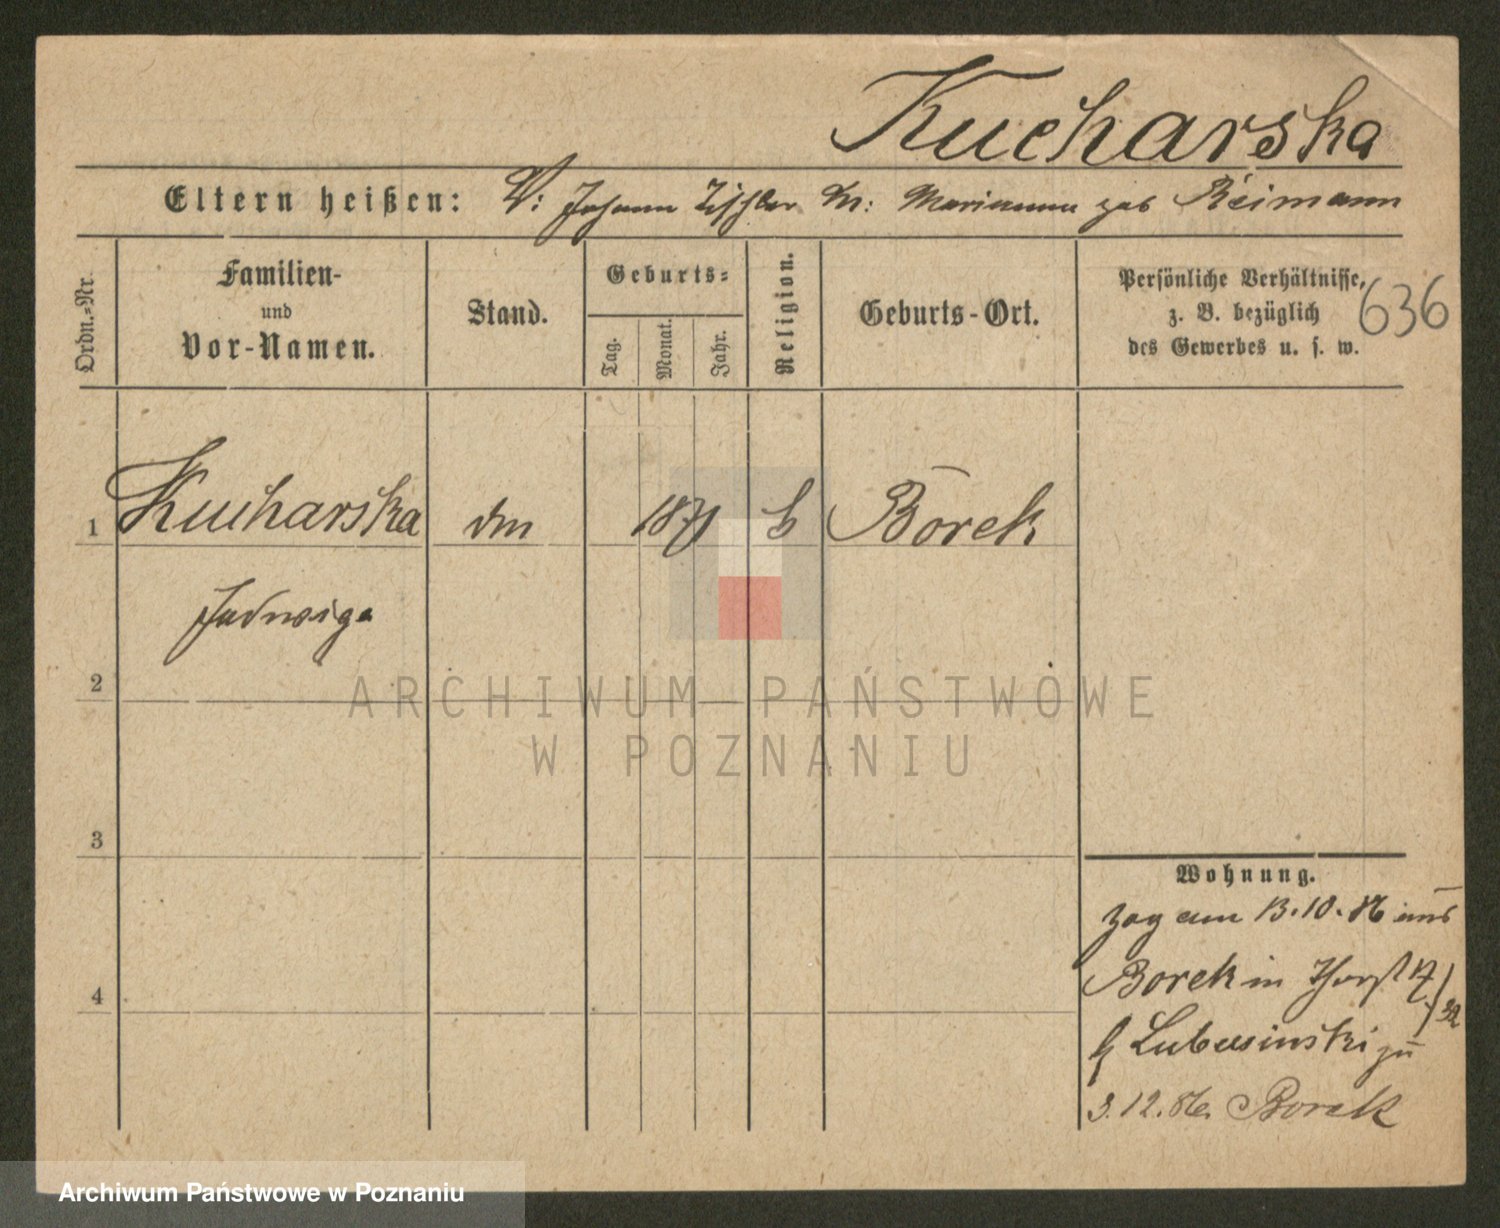 Kucharska
Eltern heißen: V: Johann Tischler M: Marianna geb Reimann
Ordn.-Nr.
Familien-
und
Vor-Namen.
Stand.
Geburts-
Tag.
Monat.
Jahr.
Religion.
Geburts-Ort.
Persönliche Verhältnisse,
z. B. bezüglich
des Gewerbes u. s. w.
636
1 Kucharska 1871 Borek
Jadwiga
2
ARCHIWUM PAŃSTWOWE
W POZNANIU
3
4
Wohnung.
Zog am 13.10.86 aus
Borek in 17/
b Lubusinski zu
3.12.86. Borek
Archiwum Państwowe w Poznaniu